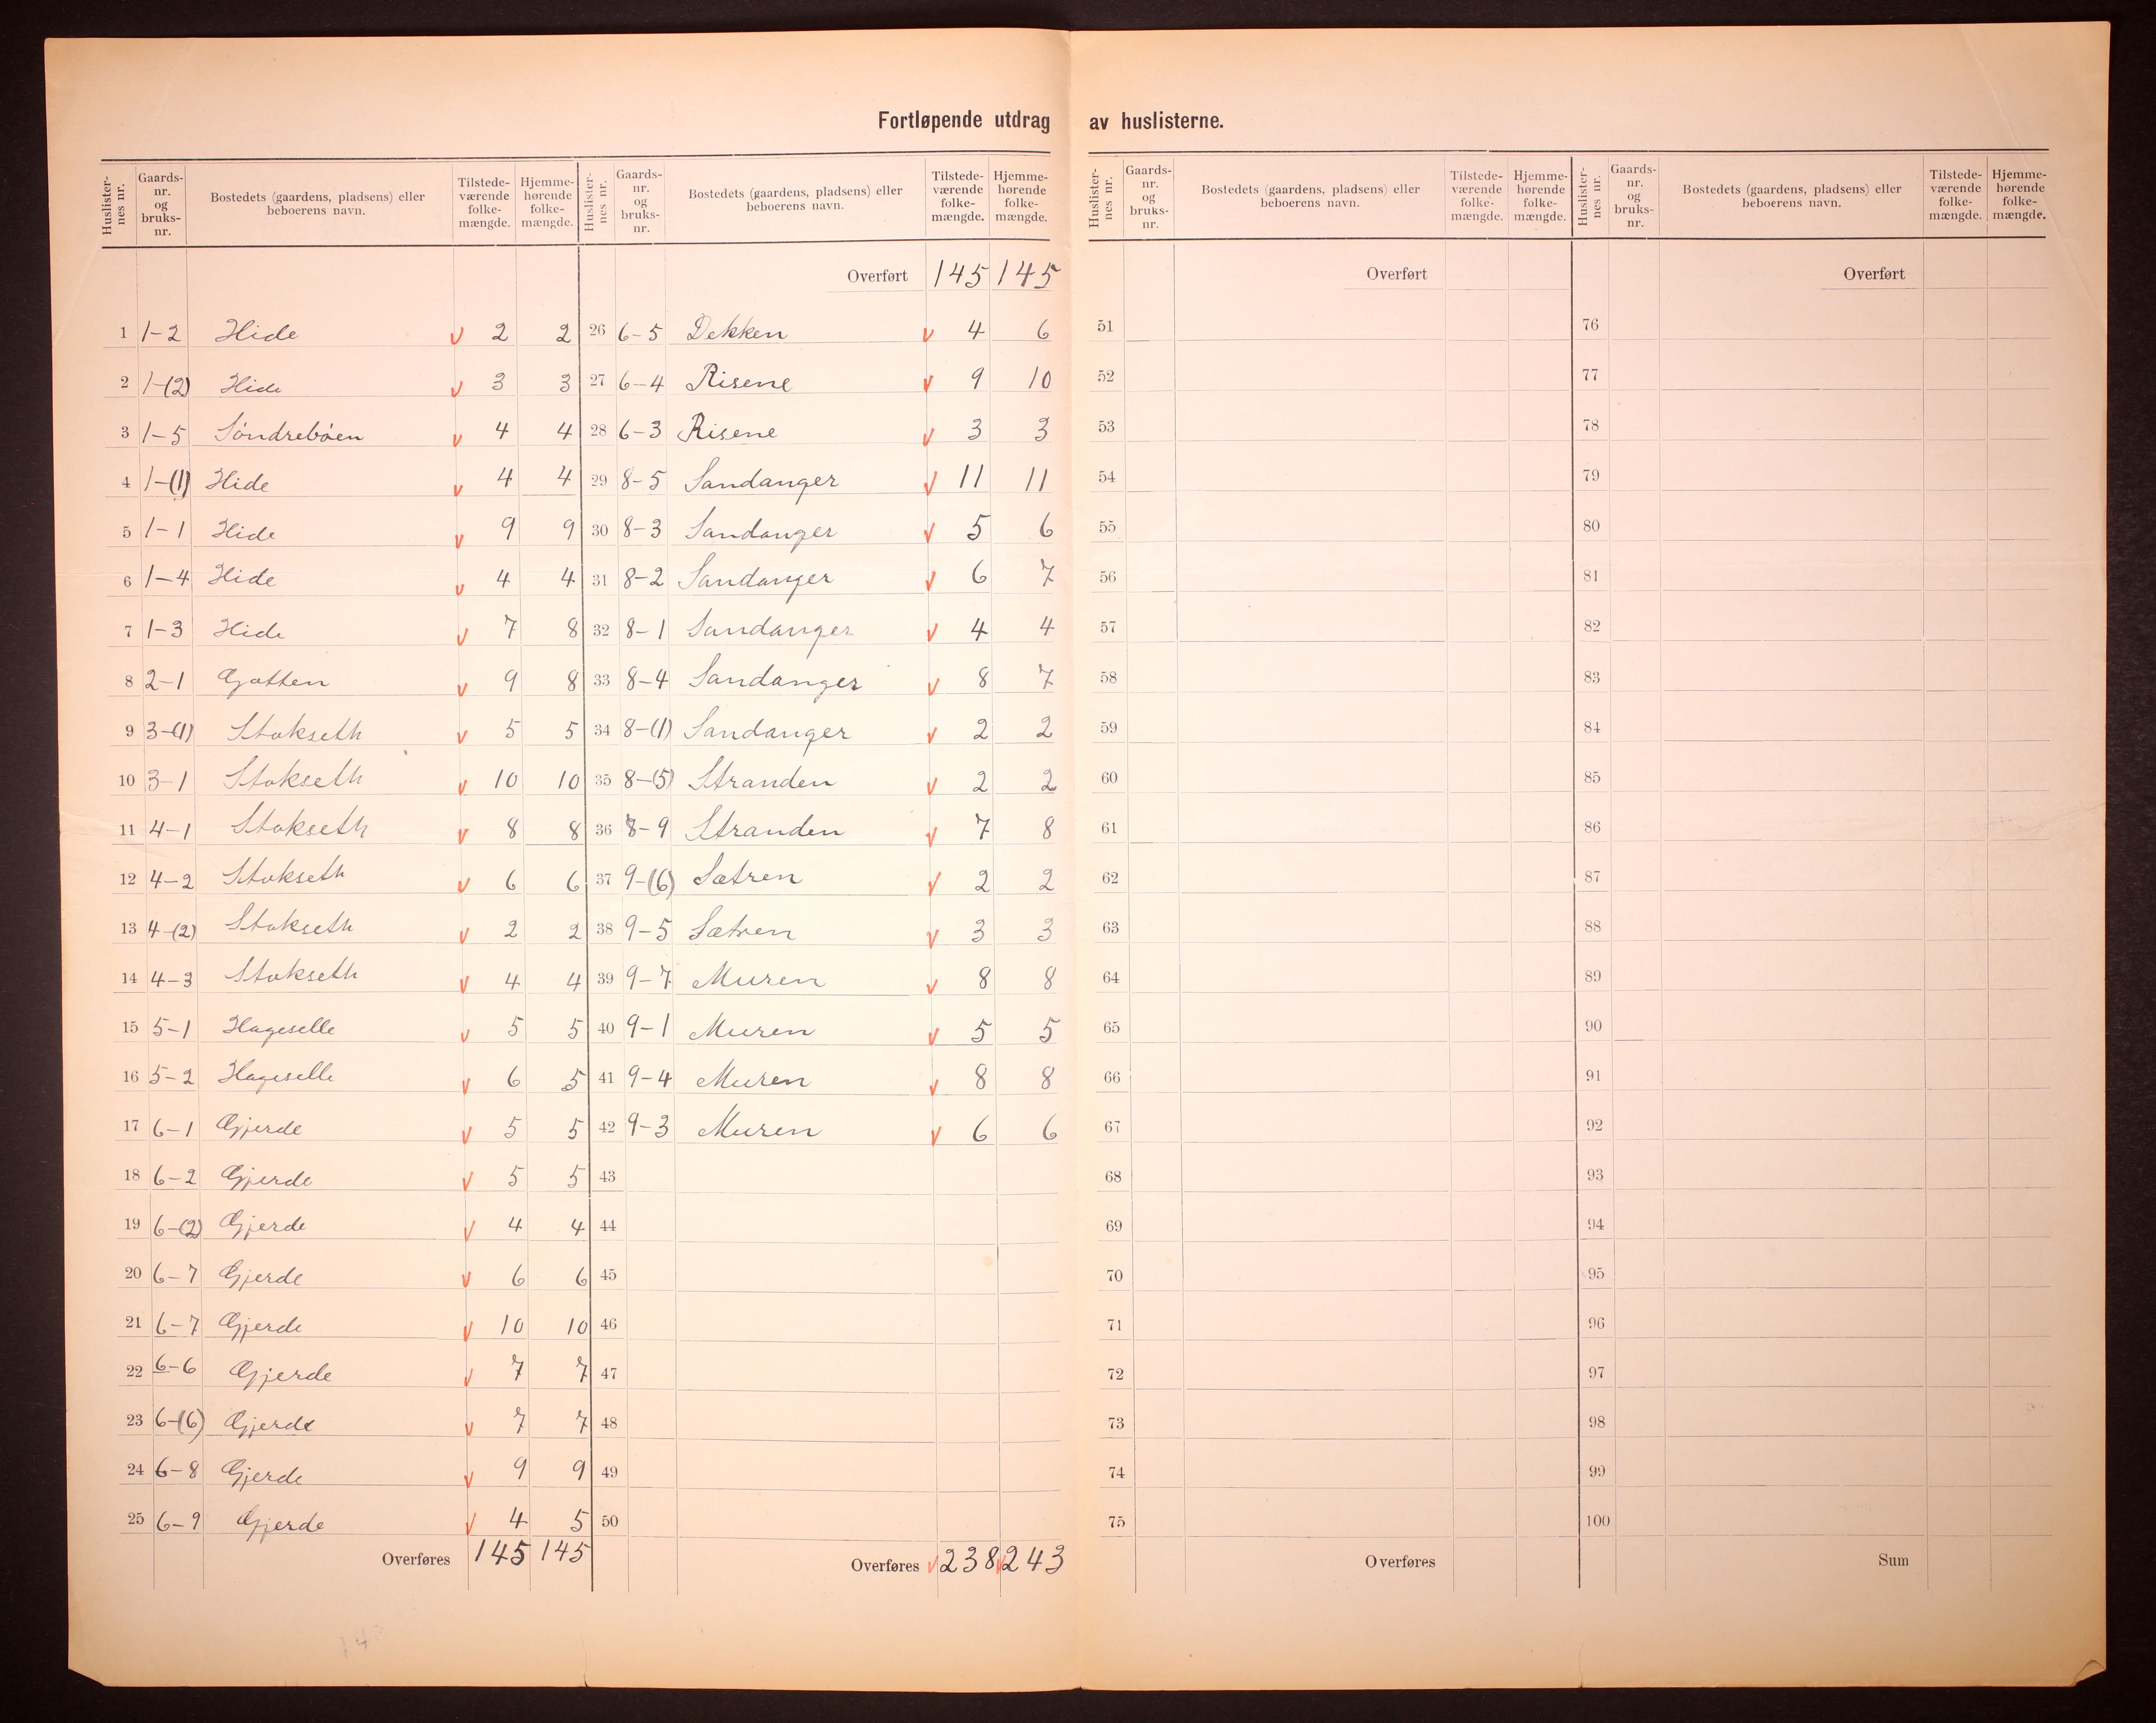 Fortløpende utdrag av huslisterne.
Huslister-nes nr. Gaards-nr. og bruks-nr. Bostedets (gaardens, pladsens) eller beboerens navn. Tilstede-værende folke-mængde. Hjemme-hørende folke-mængde.
1 1-2 Hide v 2 2
2 1-(2) Hide v 3 3
3 1-5 Söndreböen v 4 4
4 1-(1) Hide v 4 4
5 1-1 Hide v 9 9
6 1-4 Hide v 4 4
7 1-3 Hide v 7 8
8 2-1 Gotten v 9 8
9 3-(1) Stokseth v 5 5
10 3-1 Stokseth v 10 10
11 4-1 Stokseth v 8 8
12 4-2 Stokseth v 6 6
13 4-(2) Stokseth v 2 2
14 4-3 Stokseth v 4 4
15 5-1 Hageselle v 5 5
16 5-2 Hageselle v 6 5
17 6-1 Gjerde v 5 5
18 6-2 Gjerde v 5 5
19 6-(2) Gjerde v 4 4
20 6-7 Gjerde v 6 6
21 6-7 Gjerde v 10 10
22 6-6 Gjerde v 7 7
23 6-(6) Gjerde v 7 7
24 6-8 Gjerde v 9 9
25 6-9 Gjerde v 4 5
Overføres 145 145
Huslister-nes nr. Gaards-nr. og bruks-nr. Bostedets (gaardens, pladsens) eller beboerens navn. Tilstede-værende folke-mængde. Hjemme-hørende folke-mængde.
Overført 145 145
26 6-5 Dekken v 4 6
27 6-4 Risene v 9 10
28 6-3 Risene v 3 3
29 8-5 Sandanger v 11 11
30 8-3 Sandanger v 5 6
31 8-2 Sandanger v 6 7
32 8-1 Sandanger v 4 4
33 8-4 Sandanger v 8 7
34 8-(1) Sandanger v 2 2
35 8-(5) Stranden v 2 2
36 8-9 Stranden v 7 8
37 9-(6) Sætren v 2 2
38 9-5 Sætren v 3 3
39 9-7 Muren v 8 8
40 9-1 Muren v 5 5
41 9-4 Muren v 8 8
42 9-3 Muren v 6 6
43
44
45
46
47
48
49
50
Overføres v 238 v 243
Huslister-nes nr. Gaards-nr. og bruks-nr. Bostedets (gaardens, pladsens) eller beboerens navn. Tilstede-værende folke-mængde. Hjemme-hørende folke-mængde.
Overført
51
52
53
54
55
56
57
58
59
60
61
62
63
64
65
66
67
68
69
70
71
72
73
74
75
Overføres
Huslister-nes nr. Gaards-nr. og bruks-nr. Bostedets (gaardens, pladsens) eller beboerens navn. Tilstede-værende folke-mængde. Hjemme-hørende folke-mængde.
Overført
76
77
78
79
80
81
82
83
84
85
86
87
88
89
90
91
92
93
94
95
96
97
98
99
100
Sum